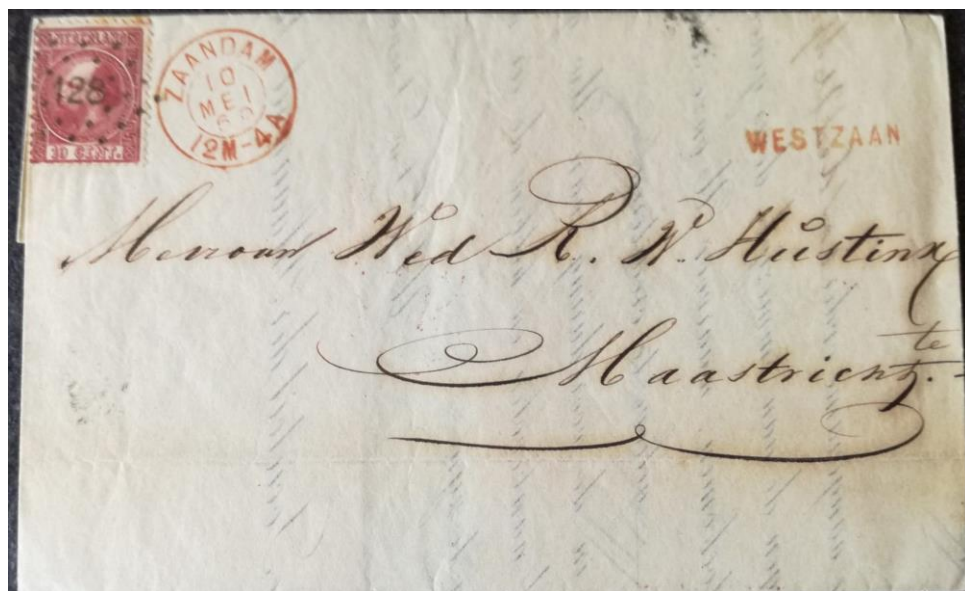 NEDERLAND
128
10 CENT.
ZAANDAM
10
MEI
69
12M-4A
WESTZAAN
Mevrouw Wed R. W. Hustinx
te
Maastricht.